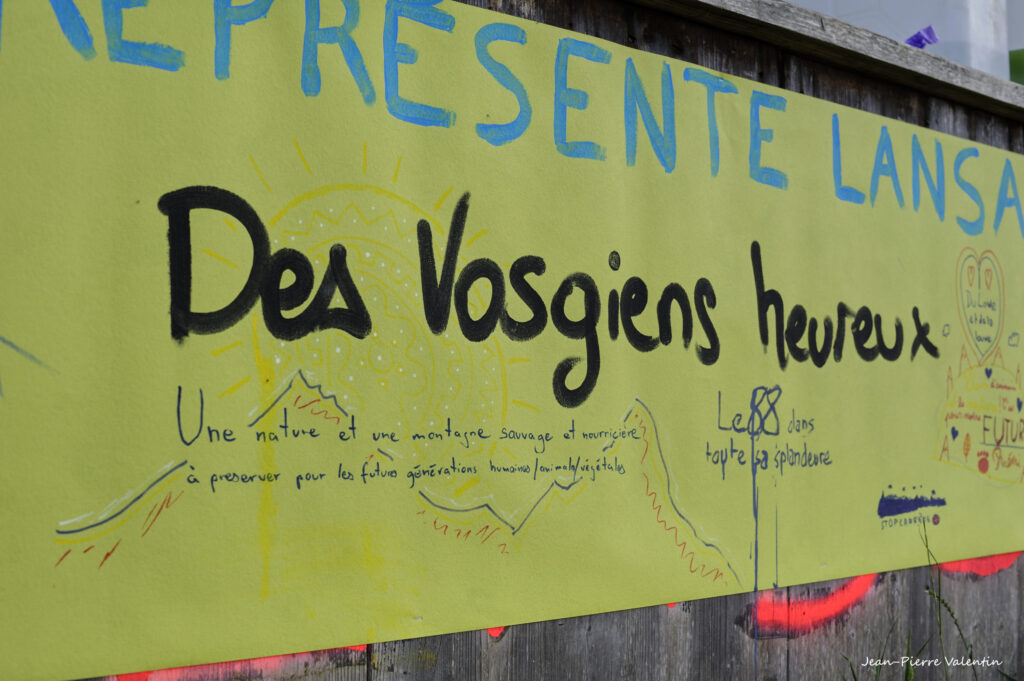 REPRESENTE LANSA
Des Vosgiens heureux
Une nature et une montagne sauvage et nourricière
à preserver pour les futures générations humaines/animals/végétales
Le 88 dans
toute sa splandeure
Du Conde
et de la
FUTUR
Jean-Pierre Valentin